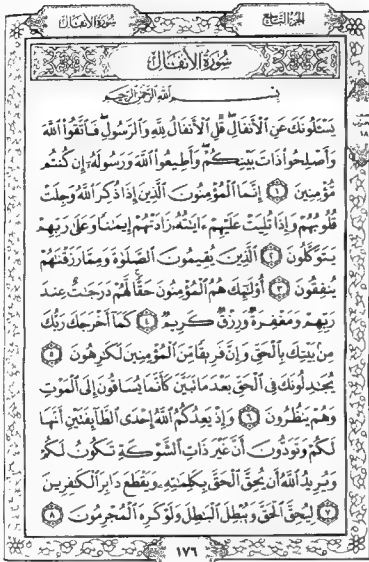 سُورَةُ الأَنفَال
الجُزءُ التَّاسِع
سُورَةُ الأَنفَال
بِسْمِ اللَّهِ الرَّحْمَٰنِ الرَّحِيمِ
يَسْـَٔلُونَكَ عَنِ ٱلْأَنفَالِۖ قُلِ ٱلْأَنفَالُ لِلَّهِ وَٱلرَّسُولِۖ فَٱتَّقُوا۟ ٱللَّهَ
وَأَصْلِحُوا۟ ذَاتَ بَيْنِكُمْۖ وَأَطِيعُوا۟ ٱللَّهَ وَرَسُولَهُۥٓ إِن كُنتُم
مُّؤْمِنِينَ ١ إِنَّمَا ٱلْمُؤْمِنُونَ ٱلَّذِينَ إِذَا ذُكِرَ ٱللَّهُ وَجِلَتْ
قُلُوبُهُمْ وَإِذَا تُلِيَتْ عَلَيْهِمْ ءَايَٰتُهُۥ زَادَتْهُمْ إِيمَٰنًا وَعَلَىٰ رَبِّهِمْ
يَتَوَكَّلُونَ ٢ ٱلَّذِينَ يُقِيمُونَ ٱلصَّلَوٰةَ وَمِمَّا رَزَقْنَٰهُمْ
يُنفِقُونَ ٣ أُو۟لَٰٓئِكَ هُمُ ٱلْمُؤْمِنُونَ حَقًّاۚ لَّهُمْ دَرَجَٰتٌ عِندَ
رَبِّهِمْ وَمَغْفِرَةٌ وَرِزْقٌ كَرِيمٌ ٤ كَمَآ أَخْرَجَكَ رَبُّكَ
مِنۢ بَيْتِكَ بِٱلْحَقِّ وَإِنَّ فَرِيقًا مِّنَ ٱلْمُؤْمِنِينَ لَكَٰرِهُونَ ٥
يُجَٰدِلُونَكَ فِى ٱلْحَقِّ بَعْدَ مَا تَبَيَّنَ كَأَنَّمَا يُسَاقُونَ إِلَى ٱلْمَوْتِ
وَهُمْ يَنظُرُونَ ٦ وَإِذْ يَعِدُكُمُ ٱللَّهُ إِحْدَى ٱلطَّآئِفَتَيْنِ أَنَّهَا
لَكُمْ وَتَوَدُّونَ أَنَّ غَيْرَ ذَاتِ ٱلشَّوْكَةِ تَكُونُ لَكُمْ
وَيُرِيدُ ٱللَّهُ أَن يُحِقَّ ٱلْحَقَّ بِكَلِمَٰتِهِۦ وَيَقْطَعَ دَابِرَ ٱلْكَٰفِرِينَ
٧ لِيُحِقَّ ٱلْحَقَّ وَيُبْطِلَ ٱلْبَٰطِلَ وَلَوْ كَرِهَ ٱلْمُجْرِمُونَ ٨
١٧٦